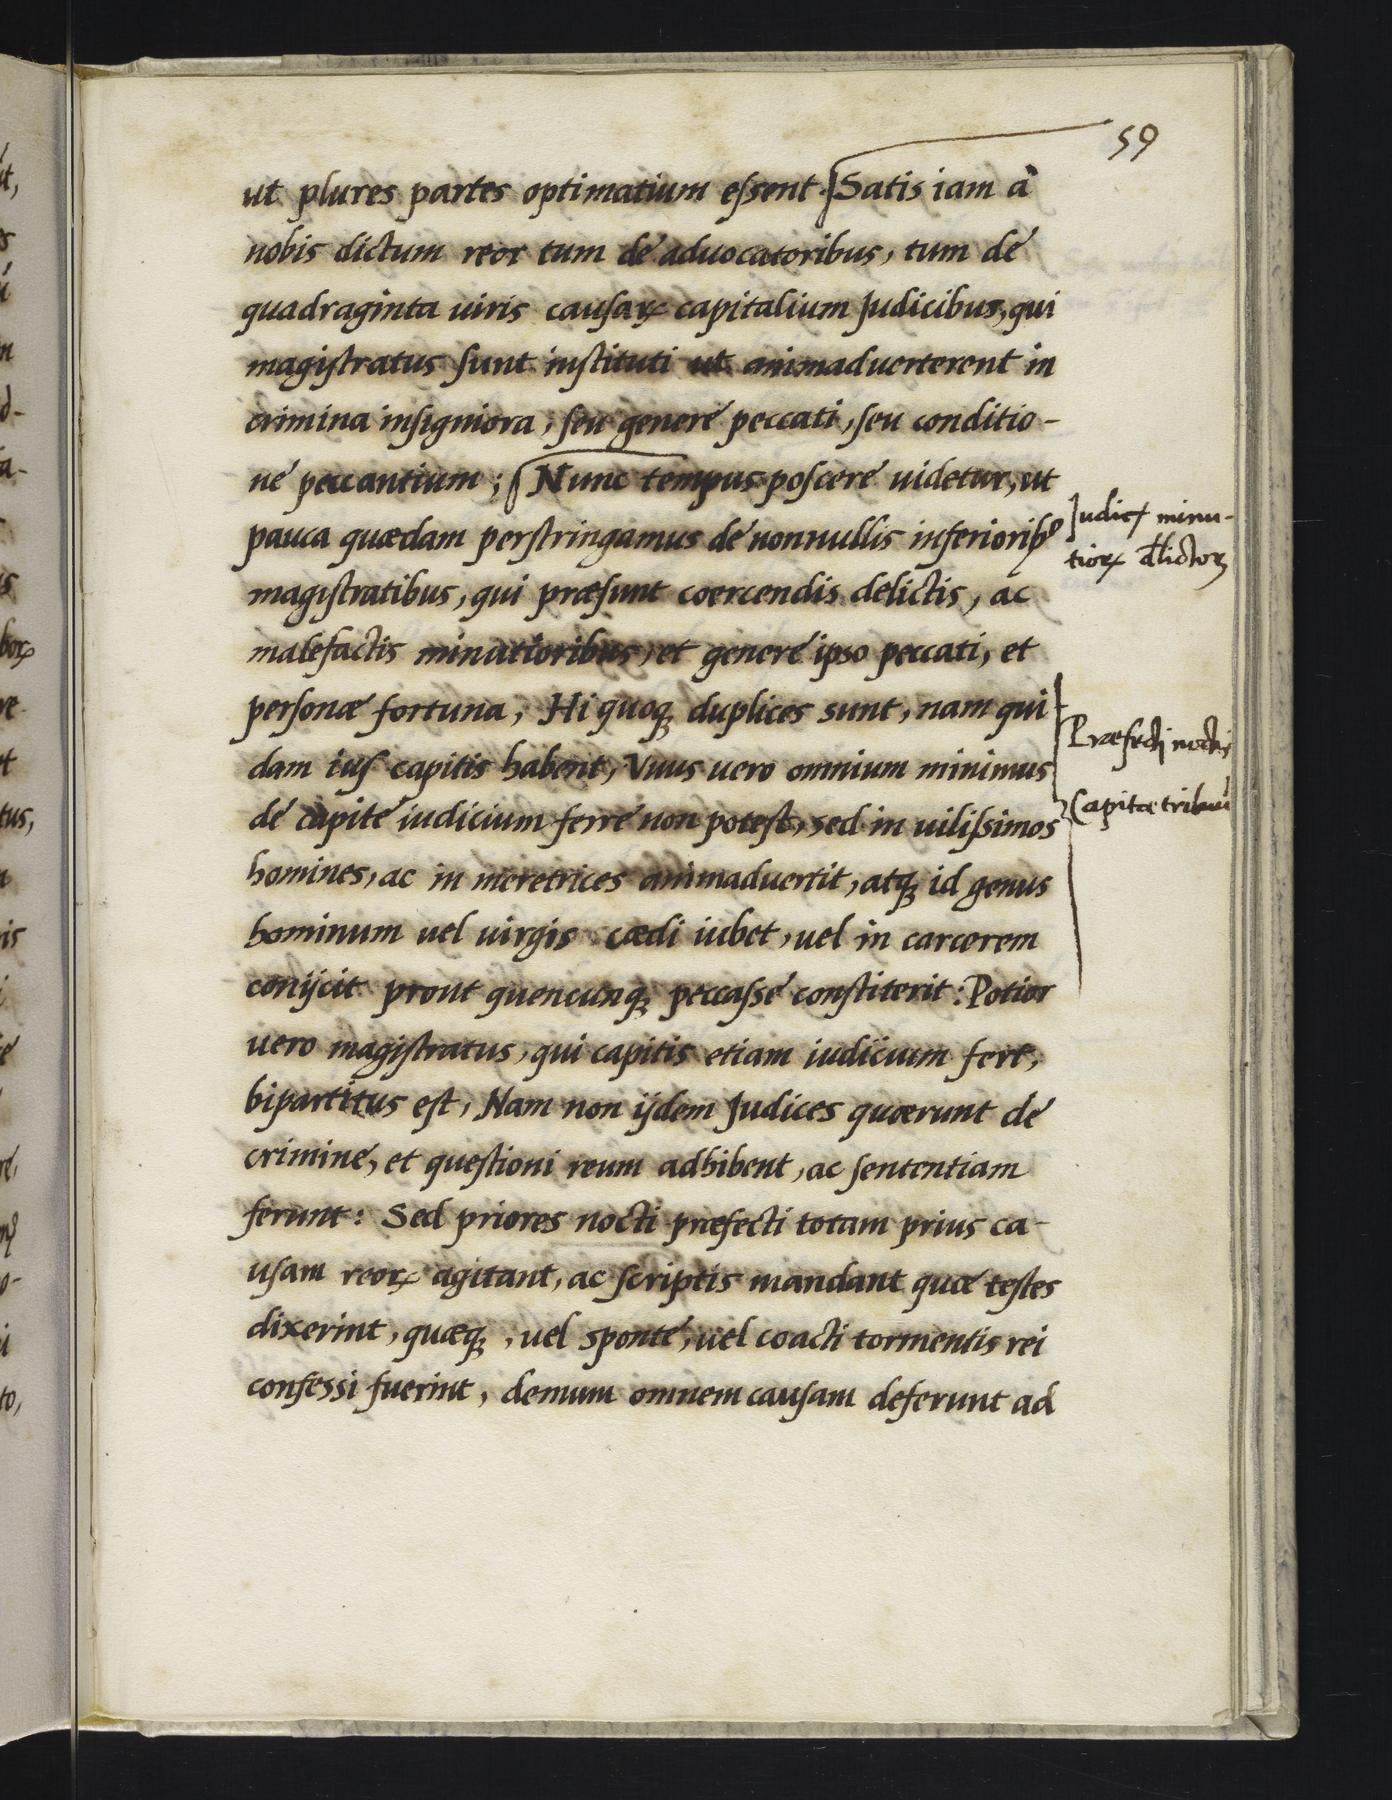 59
ut plures partes optimatium essent. Satis iam à
nobis dictum reor tum de aduocatoribus, tum de
quadraginta uiris causaꝝ capitalium Judicibus, qui
magistratus sunt instituti ut animaduerterent in
crimina insigniora, seu genere peccati, seu conditio-
ne peccantium; Nunc tempus poscere uidetur, ut
pauca quædam perstringamus de nonnullis inferiorib⁹
Judicꝝ minu-
tioꝝ dlictoꝝ
magistratibus, qui præsunt coercendis delictis, ac
malefactis minutioribus, et genere ipso peccati, et
personæ fortuna, Hi quoqꝫ duplices sunt, nam qui
Præfecti noctis
dam ius capitis habent, Vnus uero omnium minimus
Capita
de capite iudicium ferre non potest, sed in uilissimos
homines, ac in meretrices animaduertit, atqꝫ id genus
hominum uel uirgis cædi iubet, uel in carcerem
conijcit prout quencunqꝫ peccasse constiterit: Potior
uero magistratus, qui capitis etiam iudicium fert,
bipartitus est, Nam non ijdem Judices quærunt de
crimine, et questioni reum adhibent, ac sententiam
ferunt: Sed priores nocti præfecti totam prius ca-
usam reoꝝ agitant, ac scriptis mandant quæ testes
dixerint, quæqꝫ, uel sponte, uel coacti tormentis rei
confessi fuerint, demum omnem causam deferunt ad